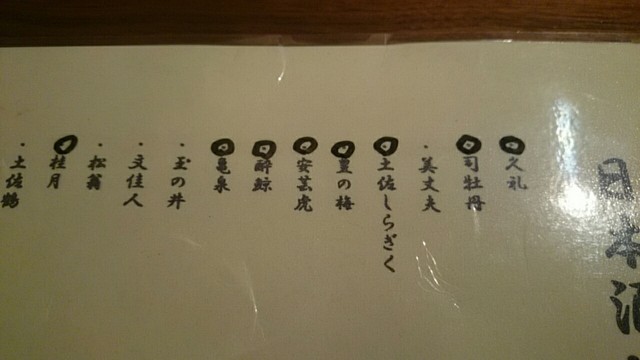 日本酒
久礼
司牡丹
・美丈夫
土佐しらぎく
豊の梅
安芸虎
酔鯨
亀泉
・玉の井
・文佳人
・松翁
桂月
・土佐鶴